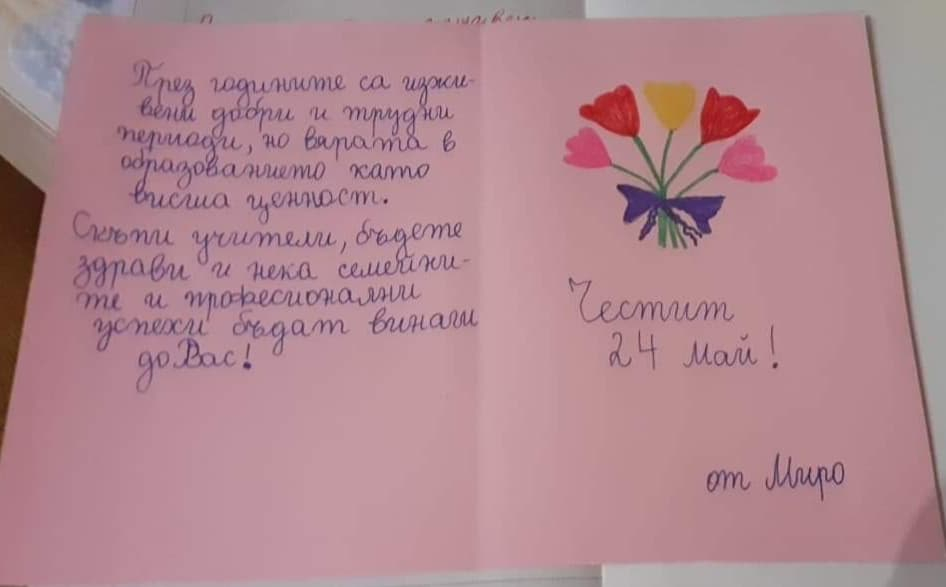 През годините са изжи-
вени добри и трудни
периоди, но вярата в
образованието като
висша ценност.
Скъпи учители, бъдете
здрави и нека семейни-
те и професионални
успехи бъдат винаги
до Вас!
Честит
24 май!
от Миро